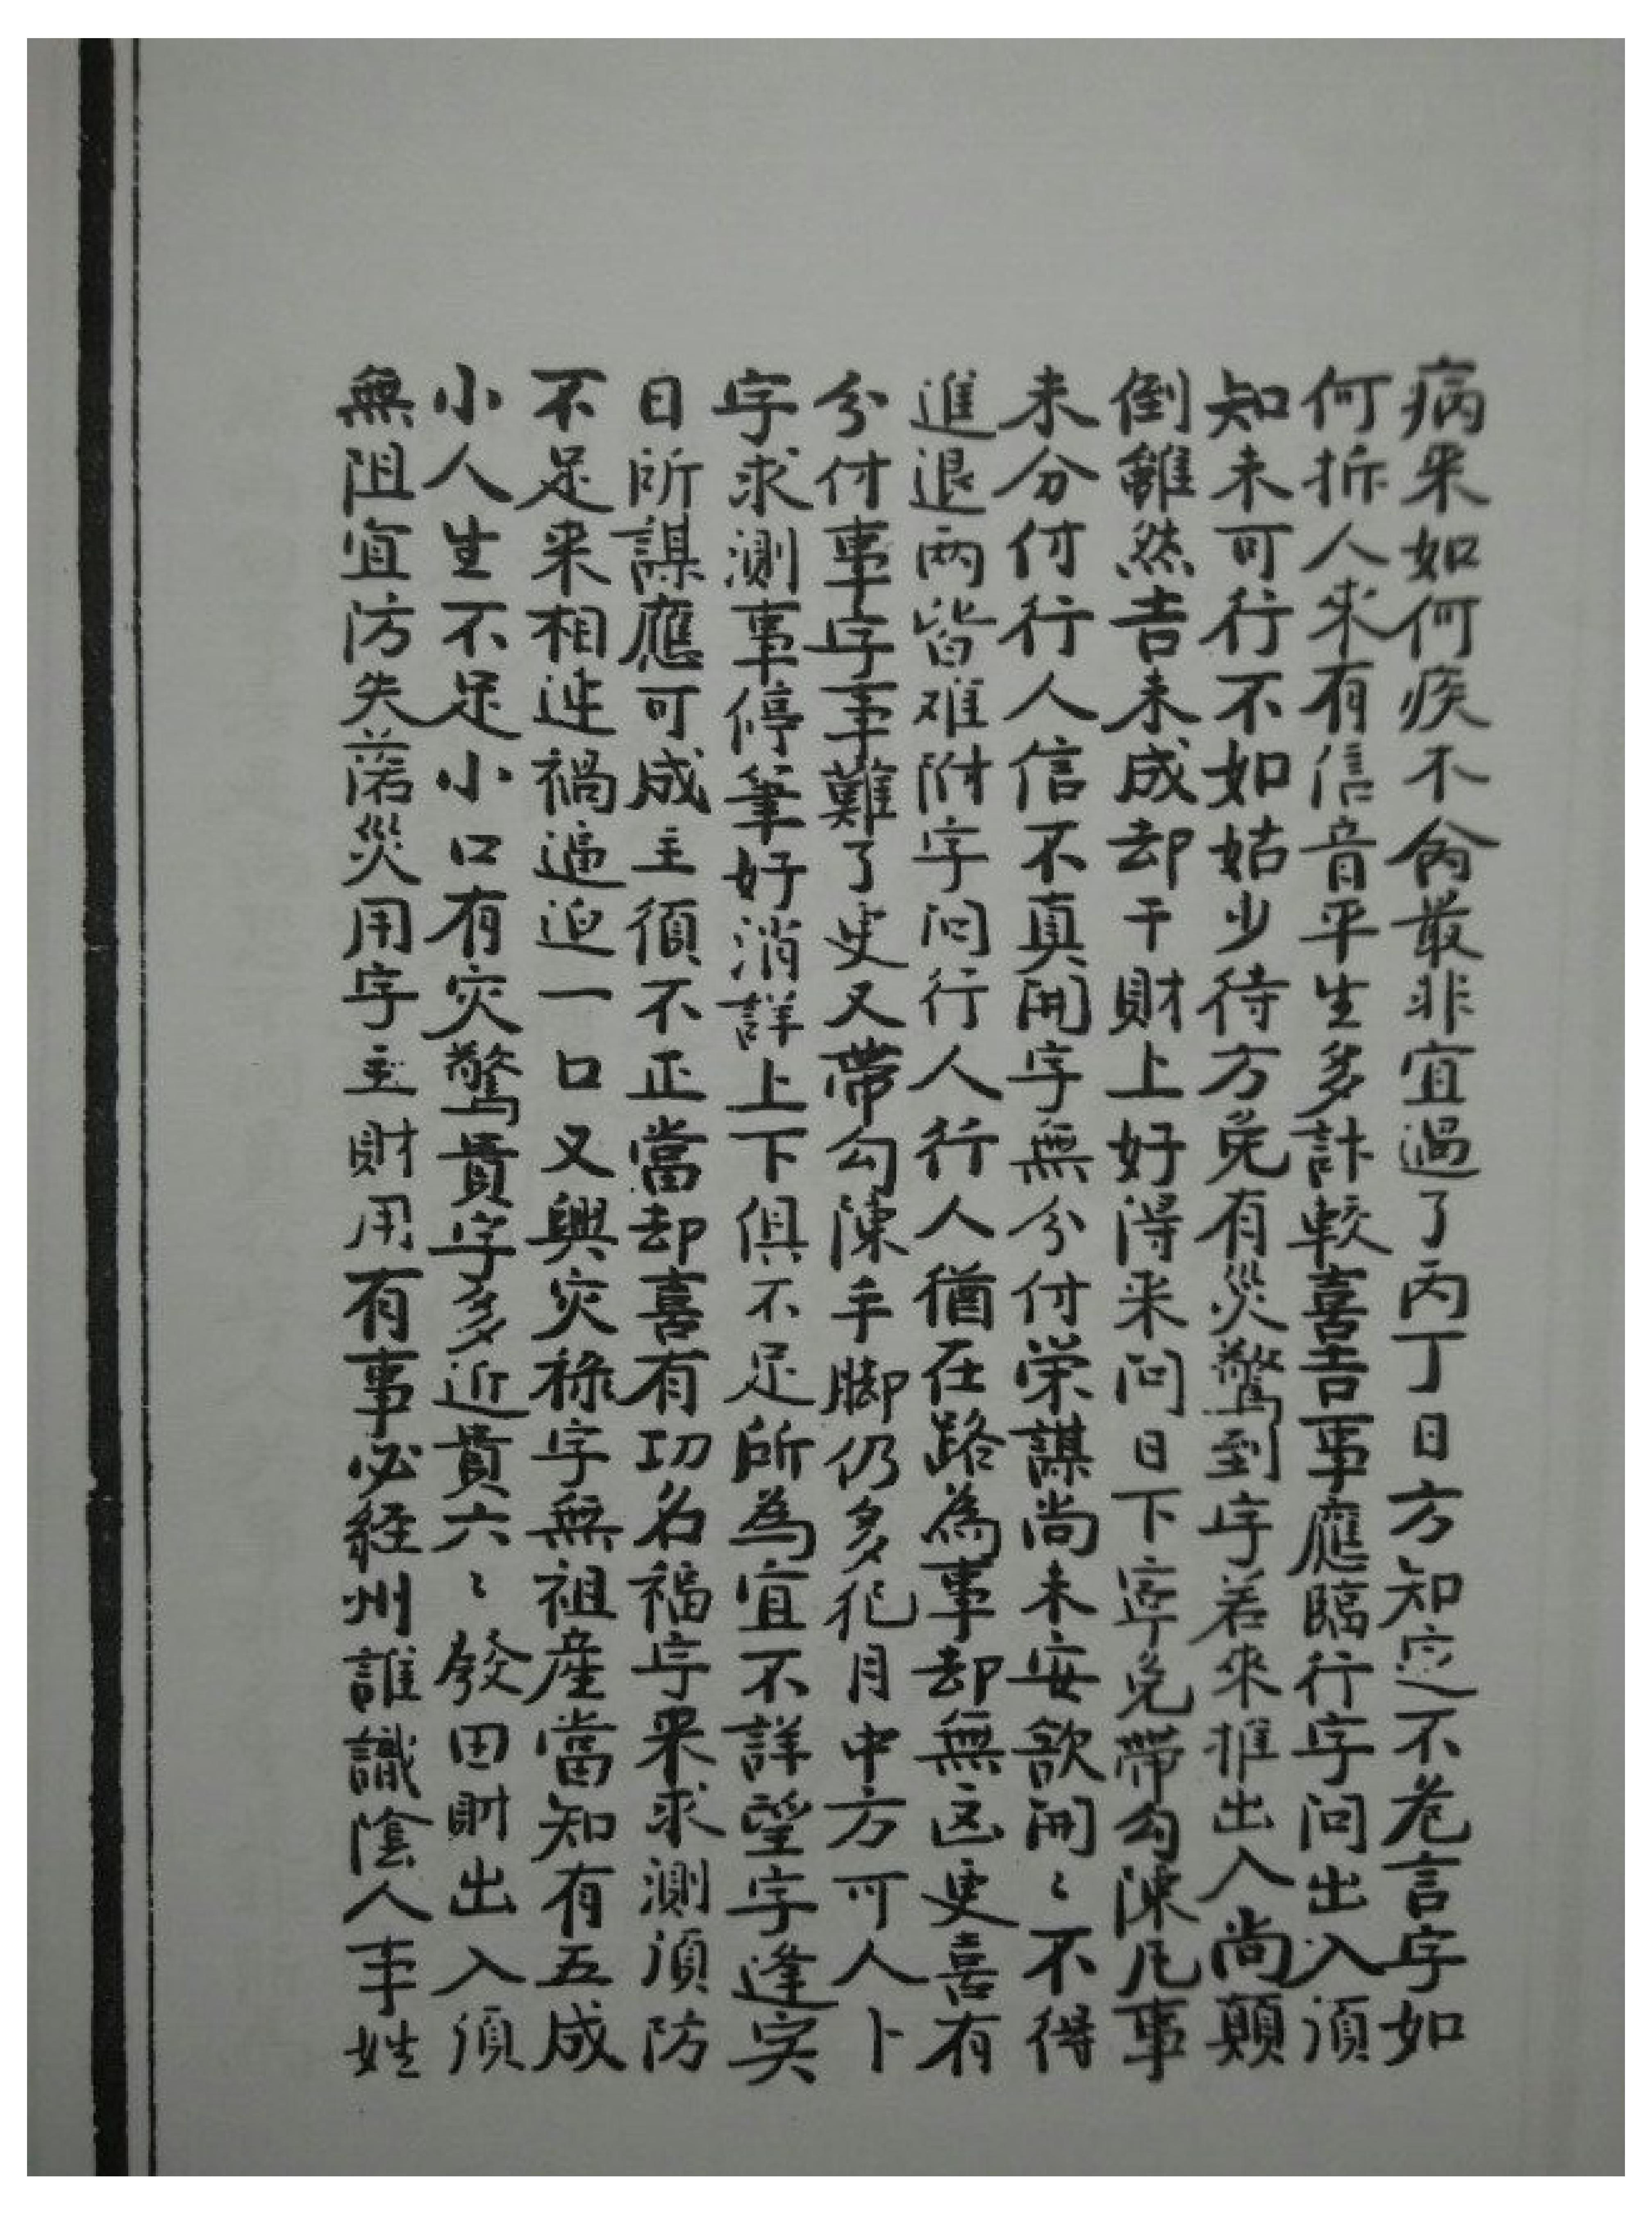 病来如何疾不㑹最非宜過了丙丁日方知定不危言字如
何拆人求有信音平生多計較喜吉事應臨行字问出入須
知未可行不如姑少待方免有災驚到字若來推出入尚顛
倒雖然吉未成却干財上好得来问日下寧免帶勾陳凡事
未分付行人信不真開字無分付荣謀尚未安欲開〻不得
進退两皆难附字问行人行人猶在路為事却無凶更喜有
分付事字事難了更又帶勾陳手脚仍多犯月中方可人卜
字求測事停筆好消詳上下俱不足所為宜不詳望字逢寅
日所謀應可成主須不正當却喜有功名福字来求測須防
不足来相迯禍逼迫一口又興灾祿字無祖産當知有五成
小人生不足小口有灾驚貴字多近貴六〻發田財出入須
無阻宜防失落災用字主財用有事必経州誰識陰人事姓